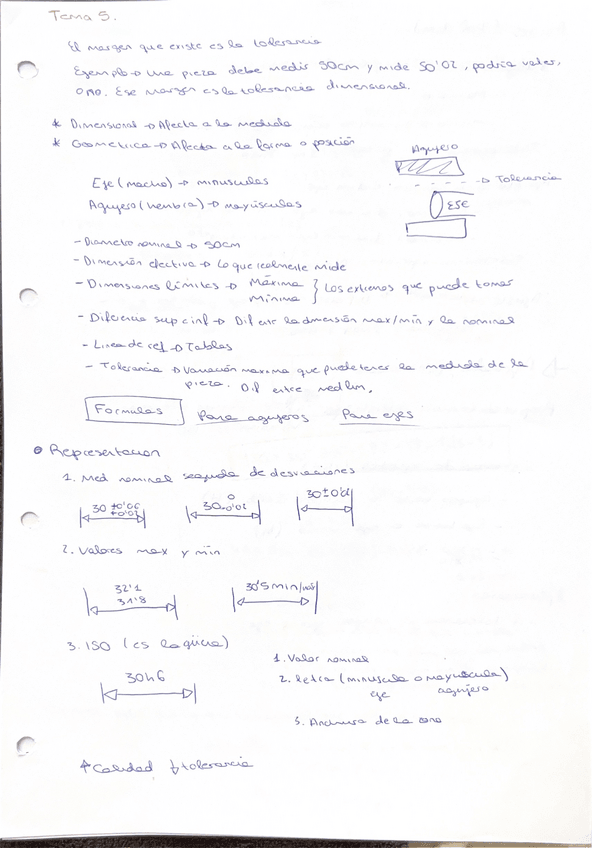 Tema 5.
El margen que existe es la tolerancia
Ejemplo → Una pieza debe medir 30cm y mide 30'02, podria valer,
o no. Ese margen es la tolerancia dimensional.
* Dimensional → Afecta a la medida
* Geometrica → Afecta a la forma o posición
Agujero
→ Tolerancia
EJE
Eje (macho) → minusculas
Agujero (hembra) → mayúsculas
- Diametro nominal → 30cm
- Dimensión efectiva → Lo que realmente mide
- Dimensiones límites → Máxima
Mínima } Los extremos que puede tomar
- Diferencia sup e inf → Dif entre la dimensión max/min y la nominal
- Linea de ref → Tablas
- Tolerancia → Variación maxima que puede tener la medida de la
pieza. Dif entre med lim.
Formulas Para agujeros Para ejes
Representacion
1. Med nominal seguida de desviaciones
30 +0'06 30 0 30±0'01
+0'02 -0'02
2. Valores max y min
32'1 30'5 min/max
31'8
3. ISO (es la güena)
30h6
1. Valor nominal
2. Letra (minuscula o mayuscula)
eje agujero
3. Anchura de la zona
↑ Calidad ↓ tolerancia